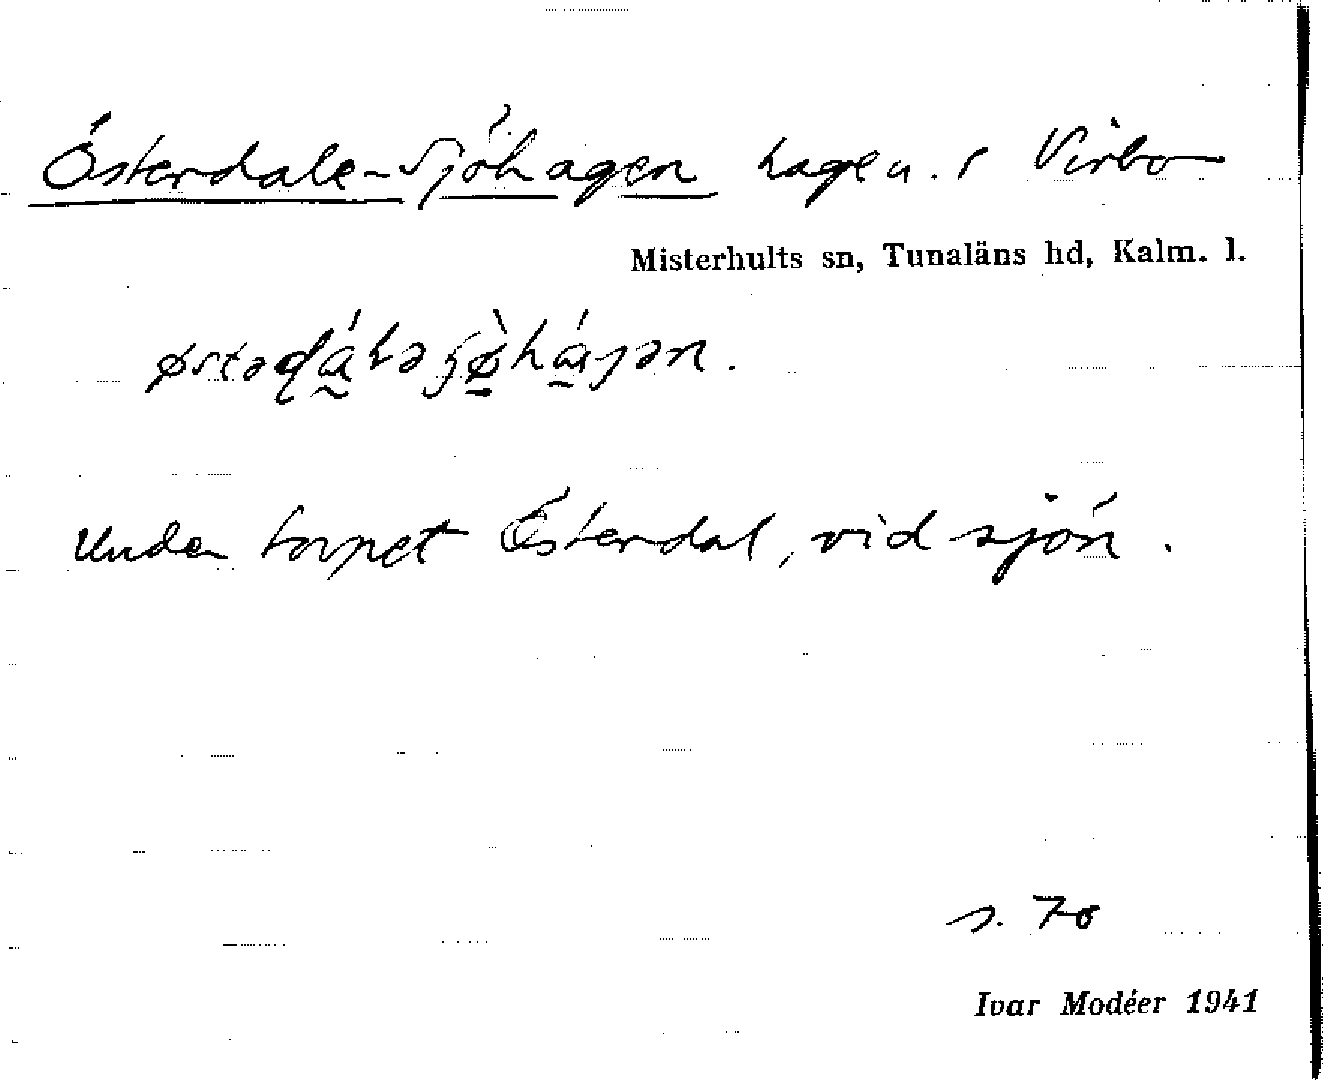 Österdale-Sjöhagen hage u. Virbo
Misterhults sn, Tunaläns hd, Kalm. l.
Under torpet Österdal, vid sjön.
s. 70
Ivar Modéer 1941